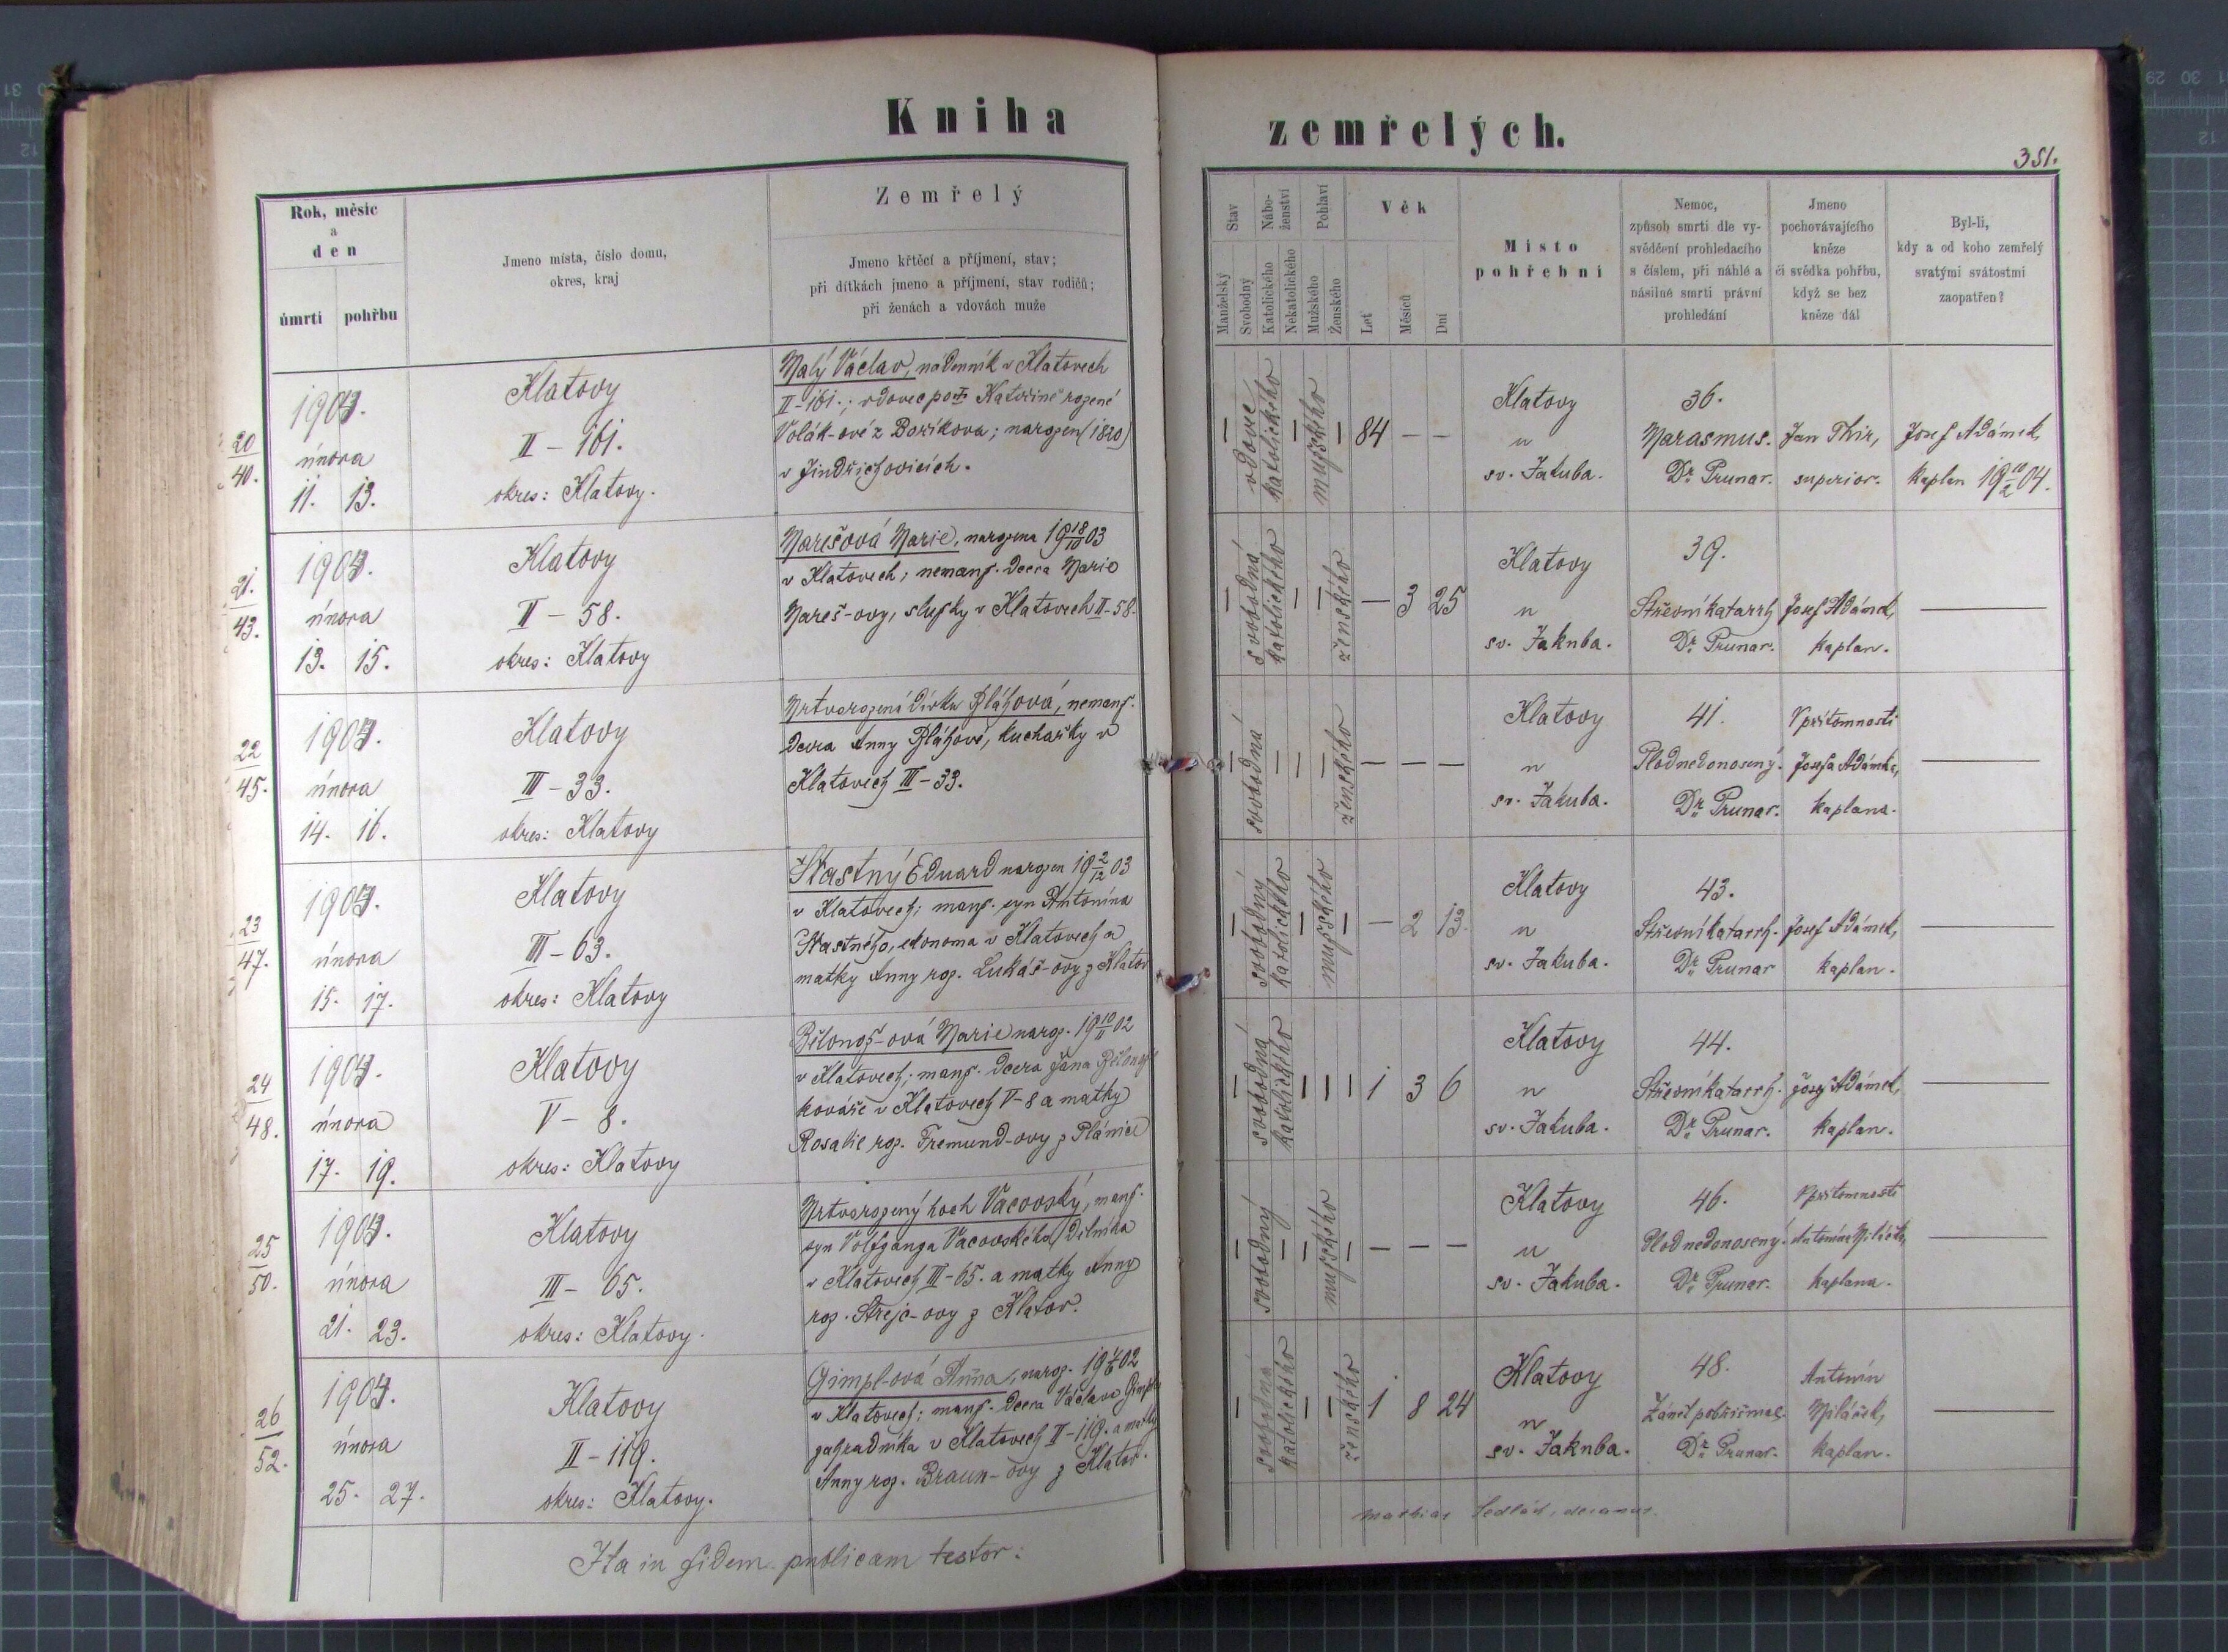 Kniha zemřelých.
351.
Rok, měsíc
a
den
úmrtí pohřbu
Jmeno místa, číslo domu,
okres, kraj
Zemřelý
Jmeno křtěcí a příjmení, stav;
při dítkách jmeno a příjmení, stav rodičů;
při ženách a vdovách muže
Stav
Manželský
Svobodný
Nábo-
ženství
Katolického
Nekatolického
Pohlaví
Mužského
Ženského
Věk
Let
Měsíců
Dní
Místo
pohřební
Nemoc,
způsob smrti dle vy-
svědčení prohledacího
s číslem, při náhlé a
násilné smrti právní
prohledání
Jmeno
pochovávajícího
kněze
či svědka pohřbu,
když se bez
kněze dál
Byl-li,
kdy a od koho zemřelý
svatými svátostmi
zaopatřen?
20
40.
1904.
února
11. 13.
Klatovy
II – 161.
okres: Klatovy.
Malý Václav, nádenník v Klatovech
II-161.; vdovec po Kateřině rozené
Volák-ové z Boříkova; narozen (1820)
v Jindřichovicích.
vdovec
katolického
mužského
84 — —
Klatovy
u
sv. Jakuba.
36.
Marasmus.
Dr. Prunar.
Jan Thir,
superior.
Josef Adámek,
kaplan 19 10/2 04.
21.
43.
1904.
února
13. 15.
Klatovy
II – 58.
okres: Klatovy
Marešová Marie, narozena 19 18/10 03
v Klatovech; nemanž. dcera Marie
Mareš-ovy, služky v Klatovech II-58.
svobodná
katolického
ženského
— 3 25
Klatovy
u
sv. Jakuba.
39.
Střevní katarrh
Dr. Prunar.
Josef Adámek,
kaplan.
22
45.
1904.
února
14. 16.
Klatovy
III – 33.
okres: Klatovy
Mrtvorozená dívka Bláhová, nemanž.
dcera Anny Bláhové, kuchařky v
Klatovech III-33.
svobodná
ženského
— — —
Klatovy
u
sv. Jakuba.
41.
Plod nedonošený.
Dr. Prunar.
V přítomnosti
Josefa Adámka,
kaplana.
23
47.
1904.
února
15. 17.
Klatovy
III – 63.
okres: Klatovy
Šťastný Eduard narozen 19 2/12 03
v Klatovech; manž. syn Antonína
Šťastného, ekonoma v Klatovech a
matky Anny roz. Lukáš-ovy z Klatov
svobodný
katolického
mužského
— 2 13.
Klatovy
u
sv. Jakuba.
43.
Střevní katarrh.
Dr. Prunar
Josef Adámek,
kaplan.
24
48.
1904.
února
17. 19.
Klatovy
V – 8.
okres: Klatovy
Bělonož-ová Marie naroz. 19 10/11 02
v Klatovech; manž. dcera Jana Bělonož
kováře v Klatovech V-8 a matky
Rosalie roz. Fremund-ovy z Plánice
svobodná
katolického
1 3 6
Klatovy
u
sv. Jakuba.
44.
Střevní katarrh.
Dr. Prunar.
Josef Adámek,
kaplan.
25
50.
1904.
února
21. 23.
Klatovy
III – 65.
okres: Klatovy.
Mrtvorozený hoch Vacovský, manž.
syn Volfganga Vacovského, dělníka
v Klatovech III-65. a matky Anny
roz. Strejc-ovy z Klatov.
svobodný
mužského
— — —
Klatovy
u
sv. Jakuba.
46.
Plod nedonošený.
Dr. Prunar.
V přítomnosti
Antonína
kaplana.
26
52.
1904.
února
25. 27.
Klatovy
II – 119.
okres: Klatovy.
Gimpl-ová Anna, naroz. 19 02
v Klatovech; manž. dcera Václava Gimpl
zahradníka v Klatovech II-119. a matky
Anny roz. Braun-ovy z Klatov.
svobodná
katolického
ženského
1 8 24
Klatovy
u
sv. Jakuba.
48.
Zánět
Dr. Prunar.
Antonín
kaplan.
Ita in fidem publicam testor:
Mathias Sedlák, decanus.